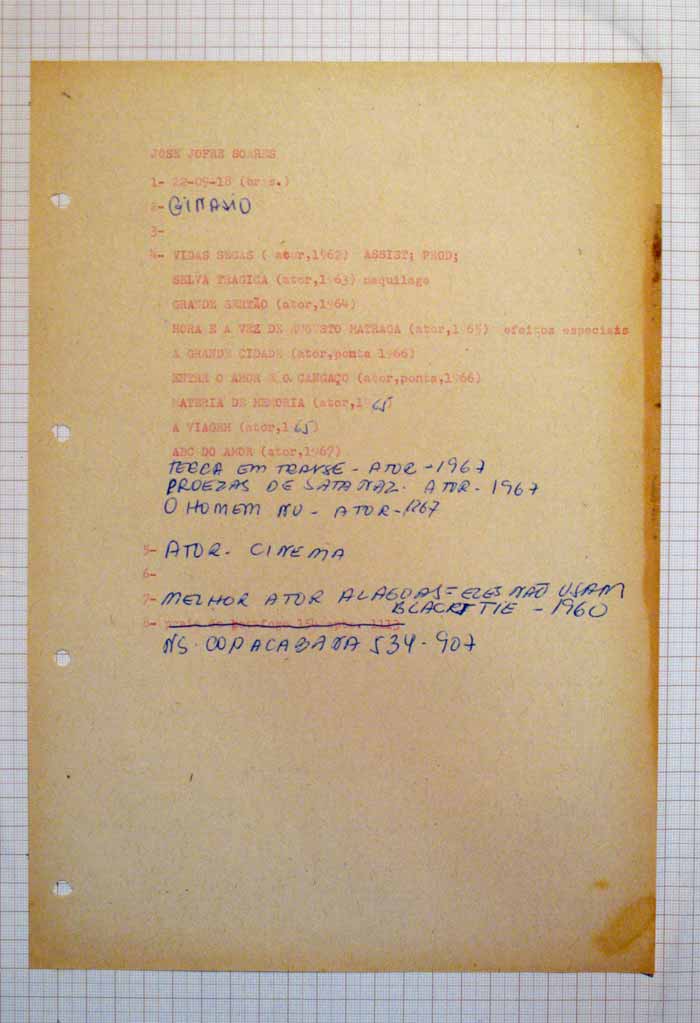 JOSE JOFRE SOARES
1- 22-09-18 (bras.)
2- GINASIO
3-
4- VIDAS SECAS ( ator,1962) ASSIST; PROD;
SELVA TRAGICA (ator,1963) maquilage
GRANDE SERTÃO (ator,1964)
HORA E A VEZ DE AUGUSTO MATRAGA (ator,1965) efeitos especiais
A GRANDE CIDADE (ator,ponta 1966)
ENTRE O AMOR E O CANGAÇO (ator,ponta,1966)
MATERIA DE MEMORIA (ator,1965)
A VIAGEM (ator,1965)
ABC DO AMOR (ator,1967)
TERRA EM TRANSE - ATOR - 1967
PROEZAS DE SATANAZ - ATOR - 1967
O HOMEM NU - ATOR - 1967
5- ATOR - CINEMA
6-
7- MELHOR ATOR ALAGOAS = ELES NÃO USAM
BLACKTTIE - 1960
8- praia de Botafogo 154 apto. 1113
NS. COPACABANA 534 - 907